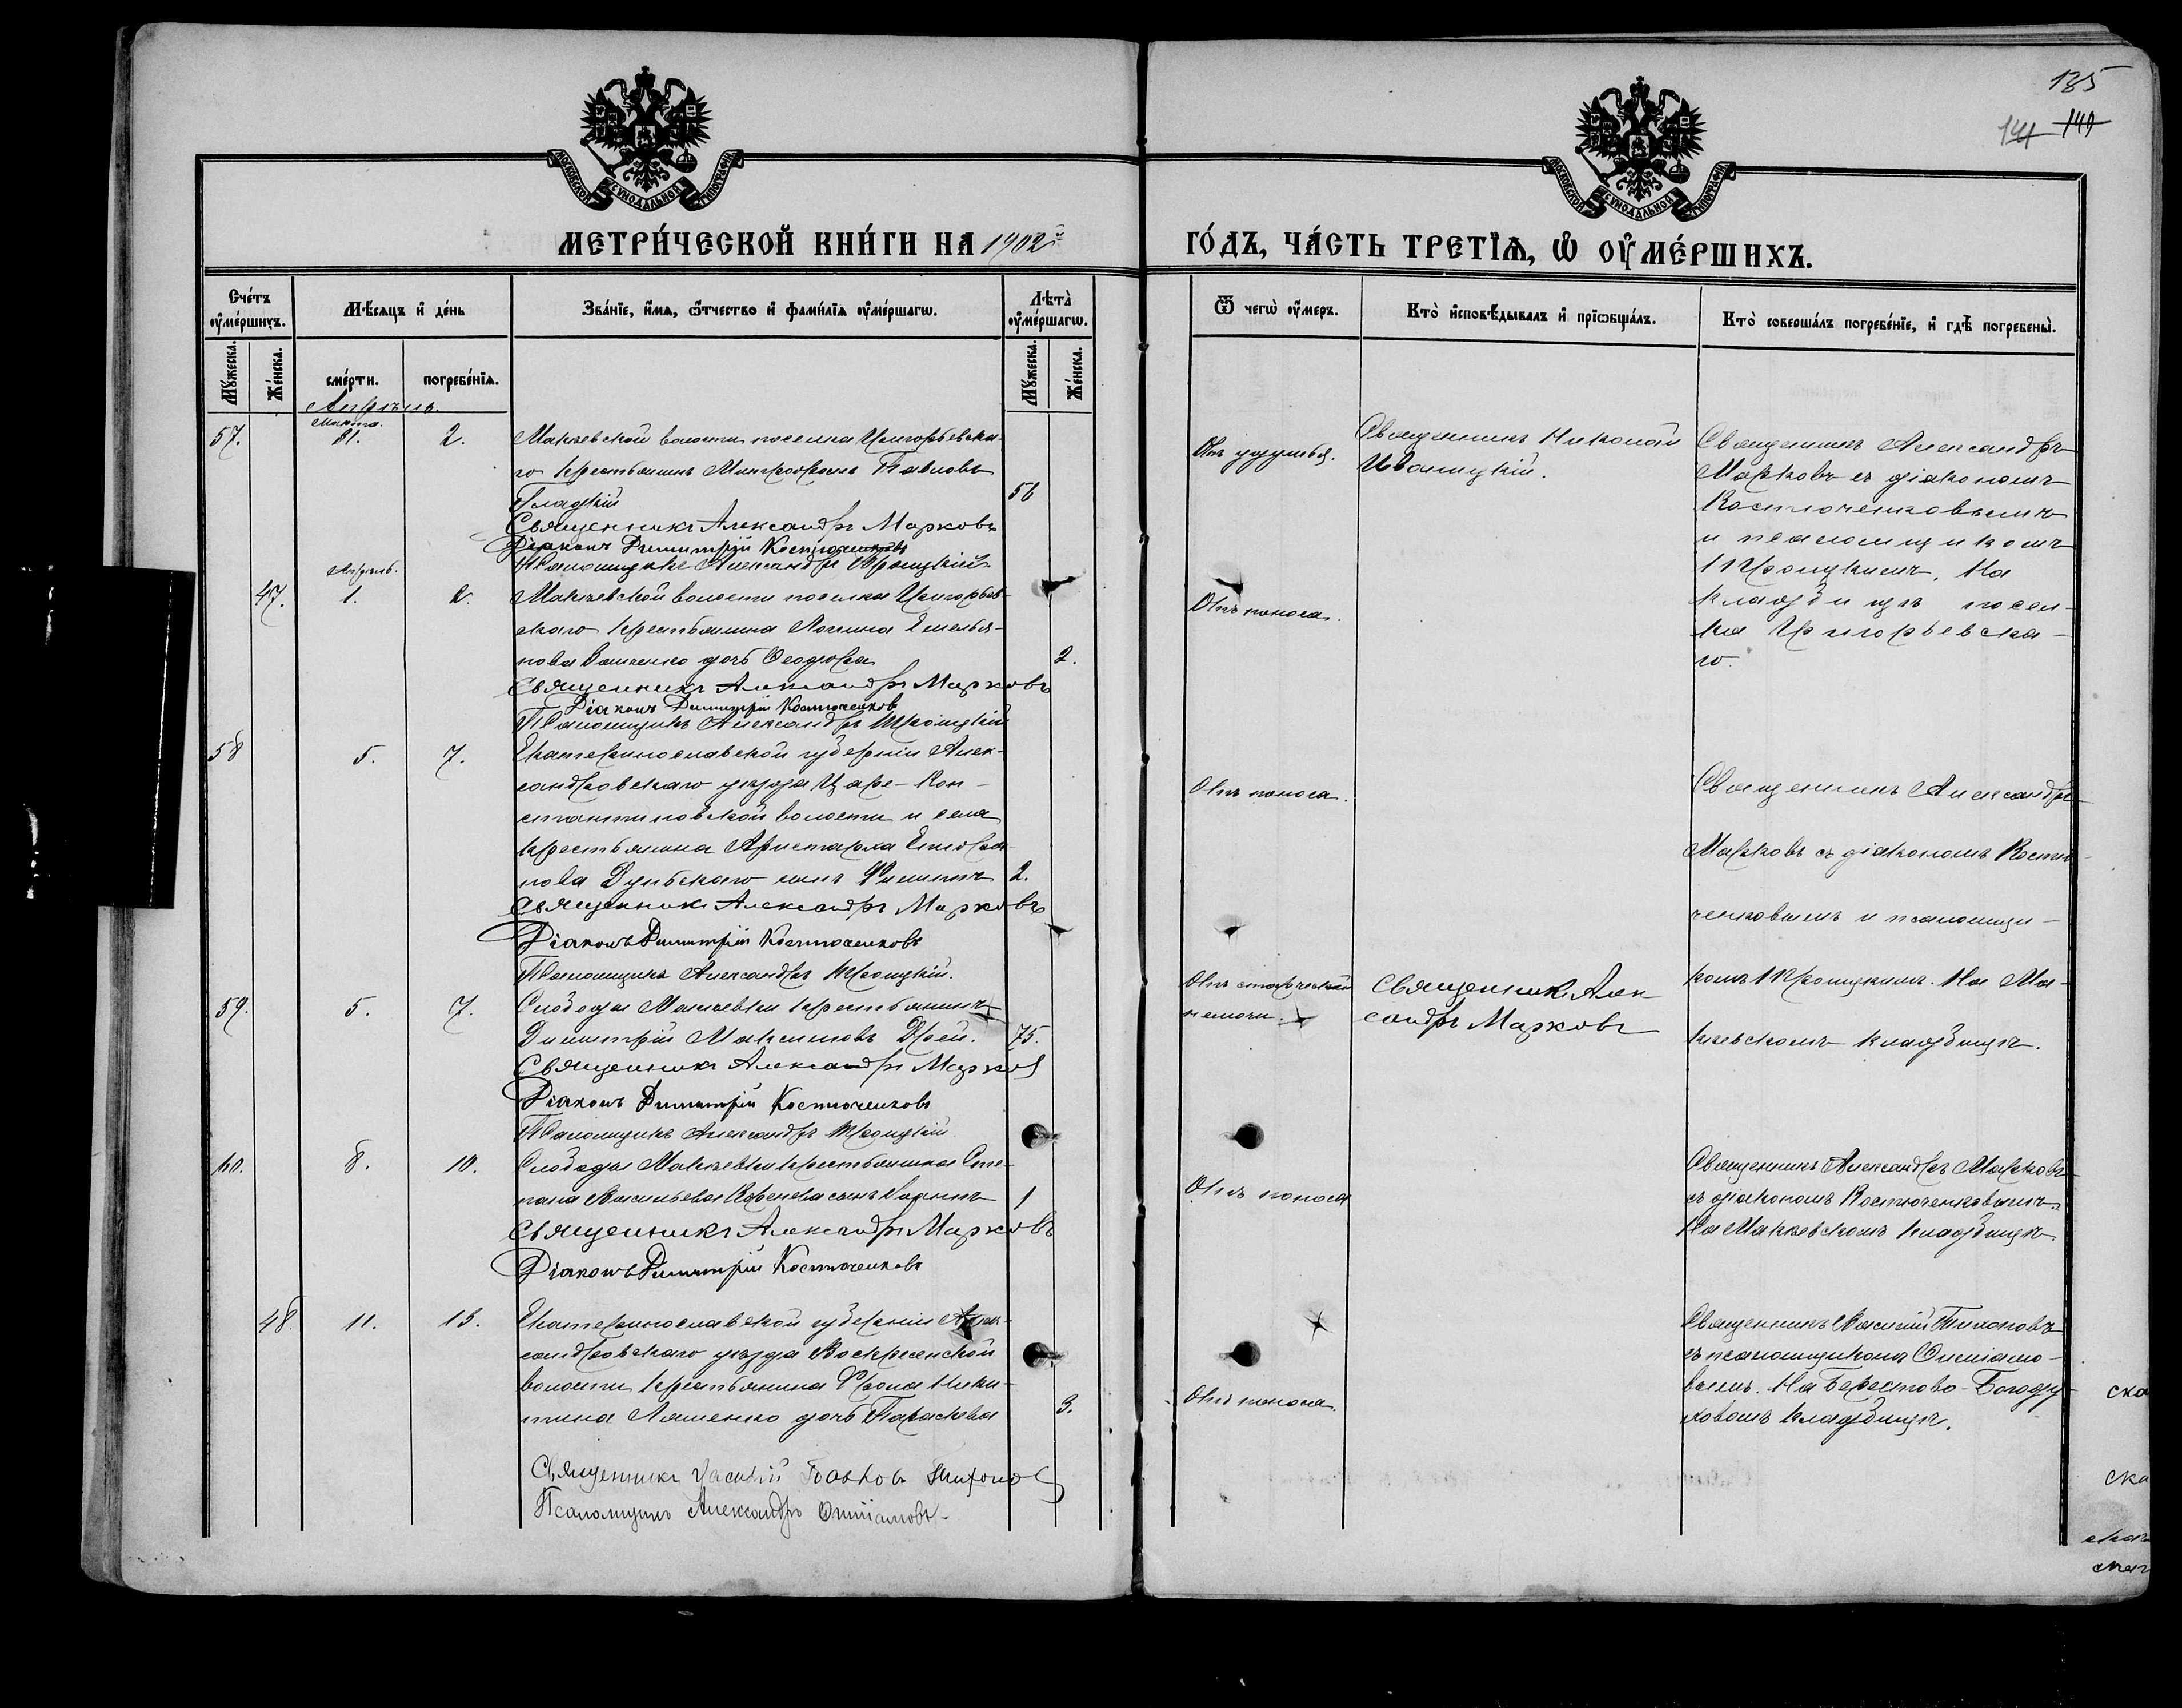 135
141 140
МОСКОВСКОЙ СѴНОДАЛЬНОЙ ТИПОГРАФІИ
МОСКОВСКОЙ СѴНОДАЛЬНОЙ ТИПОГРАФІИ
МЕТРИ́ЧЕСКОЙ КНИ́ГИ НА 1902й
ГО́ДЪ, ЧА́СТЬ ТРЕТІѦ, Ѡ ОУ҆МЕ́РШИХЪ.
Сче́тъ оу҆ме́ршихъ.
Мѣсяцъ и҆ де́нь
Зва́нїе, и҆́мя, ѻ҆́тчество и҆ фами́лїя оу҆ме́ршагѡ.
Лѣта̀ оу҆ме́ршагѡ.
Ѿ чегѡ̀ оу҆́меръ.
Кто̀ и҆сповѣ́дывалъ и҆ прїѻбща́лъ.
Кто̀ соверша́лъ погребе́нїе, и҆ гдѣ̀ погребены̀.
Мꙋ́жеска.
Же́нска.
сме́рти.
погребе́нїѧ.
Мꙋ́жеска.
Же́нска.
Апрѣль.
57.
Марта.
31.
2.
Макѣевской волости поселка Григорьевска-
го крестьянинъ Митрофанъ Павловъ
Гладкій
56
Священникъ Александръ Марковъ
Діаконъ Димитрій Костюченковъ
Псаломщикъ Александръ Троицкій
Отъ удушья.
Священникъ Николай
Иваницкій.
Священникъ Александръ
Марковъ съ діакономъ
Костюченковымъ
и псаломщикомъ
Троицкимъ. На
кладбищѣ посел-
ка Григорьевска-
го.
47.
Апрѣль.
1.
2.
Макѣевской волости поселка Григорьев-
скаго крестьянина Логина Емелья-
нова дочь Ѳеодора
2.
Священникъ Александръ Марковъ
Діаконъ Димитрій Костюченковъ
Псаломщикъ Александръ Троицкій
Отъ поноса.
58
5.
7.
Екатеринославской губерніи Алек-
сандровскаго уѣзда Царе-Кон-
стантиновской волости и села
крестьянина Аристарха
нова сынъ Филиппъ
2.
Священникъ Александръ Марковъ
Діаконъ Димитрій Костюченковъ
Псаломщикъ Александръ Троицкій.
Отъ поноса.
Священникъ Александръ
Марковъ съ діакономъ Костю-
ченковымъ и псаломщи-
комъ Троицкимъ. На Ма-
кѣевскомъ кладбищѣ.
59.
5.
7.
Слободы Макѣевки крестьянинъ
Димитрій Максимовъ
75.
Священникъ Александръ Марковъ
Діаконъ Димитрій Костюченковъ
Псаломщикъ Александръ Троицкій
Отъ старческой
немочи.
Священникъ Алек
сандръ Марковъ
60.
8.
10.
Слободы Макѣевки крестьянина Сте-
пана Васильева сынъ Іоаннъ
1
Священникъ Александръ Марковъ
Діаконъ Димитрій Костюченковъ
Отъ поноса
Священникъ Александръ Марковъ
съ діакономъ Костюченковымъ.
На Макѣевскомъ кладбищѣ.
48.
11.
13.
Екатеринославской губерніи Алек-
сандровскаго уѣзда Воскресенской
волости крестьянина Фрола Ники-
тина Ляшенко дочь Параскева
3.
Священникъ Василій Тихонов
Псаломщикъ Александръ
Отъ поноса.
Священникъ Василій Тихоновъ
съ псаломщикомъ
вымъ. На Берестово-Богоду-
ховомъ кладбищѣ.
ска
ска